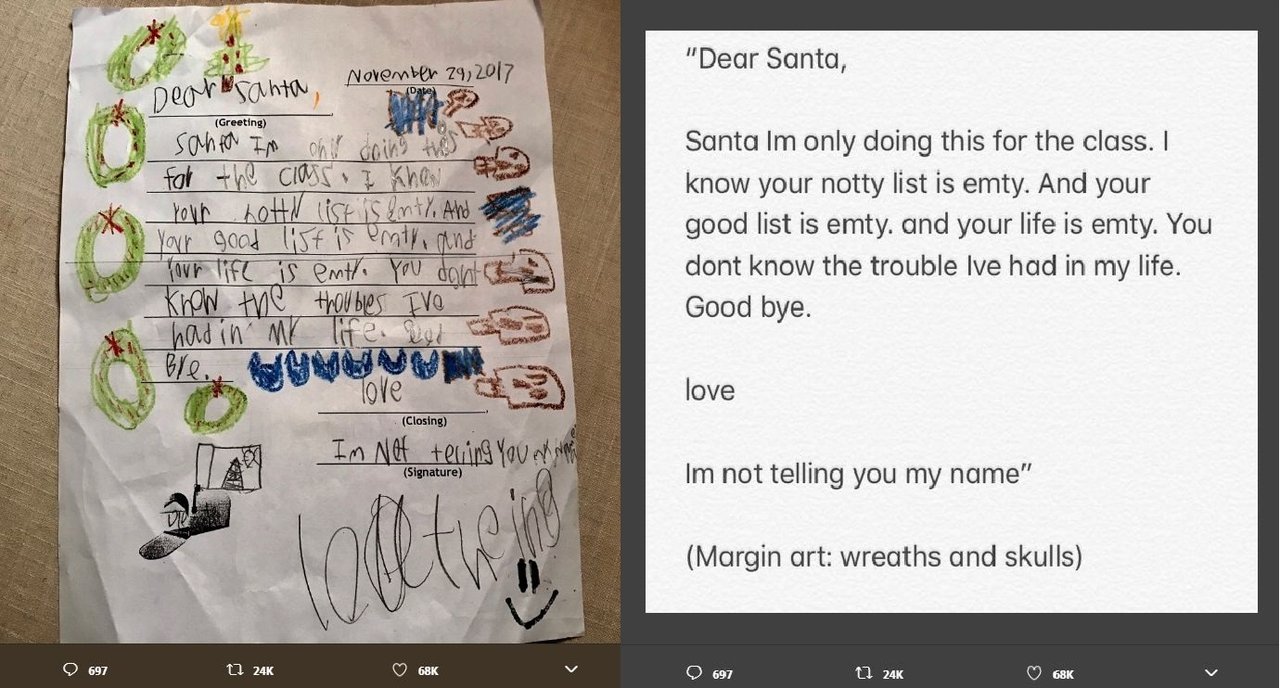 November 29, 2017
(Date)
Dear Santa,
(Greeting)
Santa Im only doing this
for the class. I know
Your notty list is emty. And
Your good list is emty. and
Your life is emty. You dont
know the troubles Ive
had in my life. Good
Bye.
love
(Closing)
Im Not telling You my name
(Signature)
697
24K
68K
"Dear Santa,
Santa Im only doing this for the class. I
know your notty list is emty. And your
good list is emty. and your life is emty. You
dont know the trouble Ive had in my life.
Good bye.
love
Im not telling you my name"
(Margin art: wreaths and skulls)
697
24K
68K